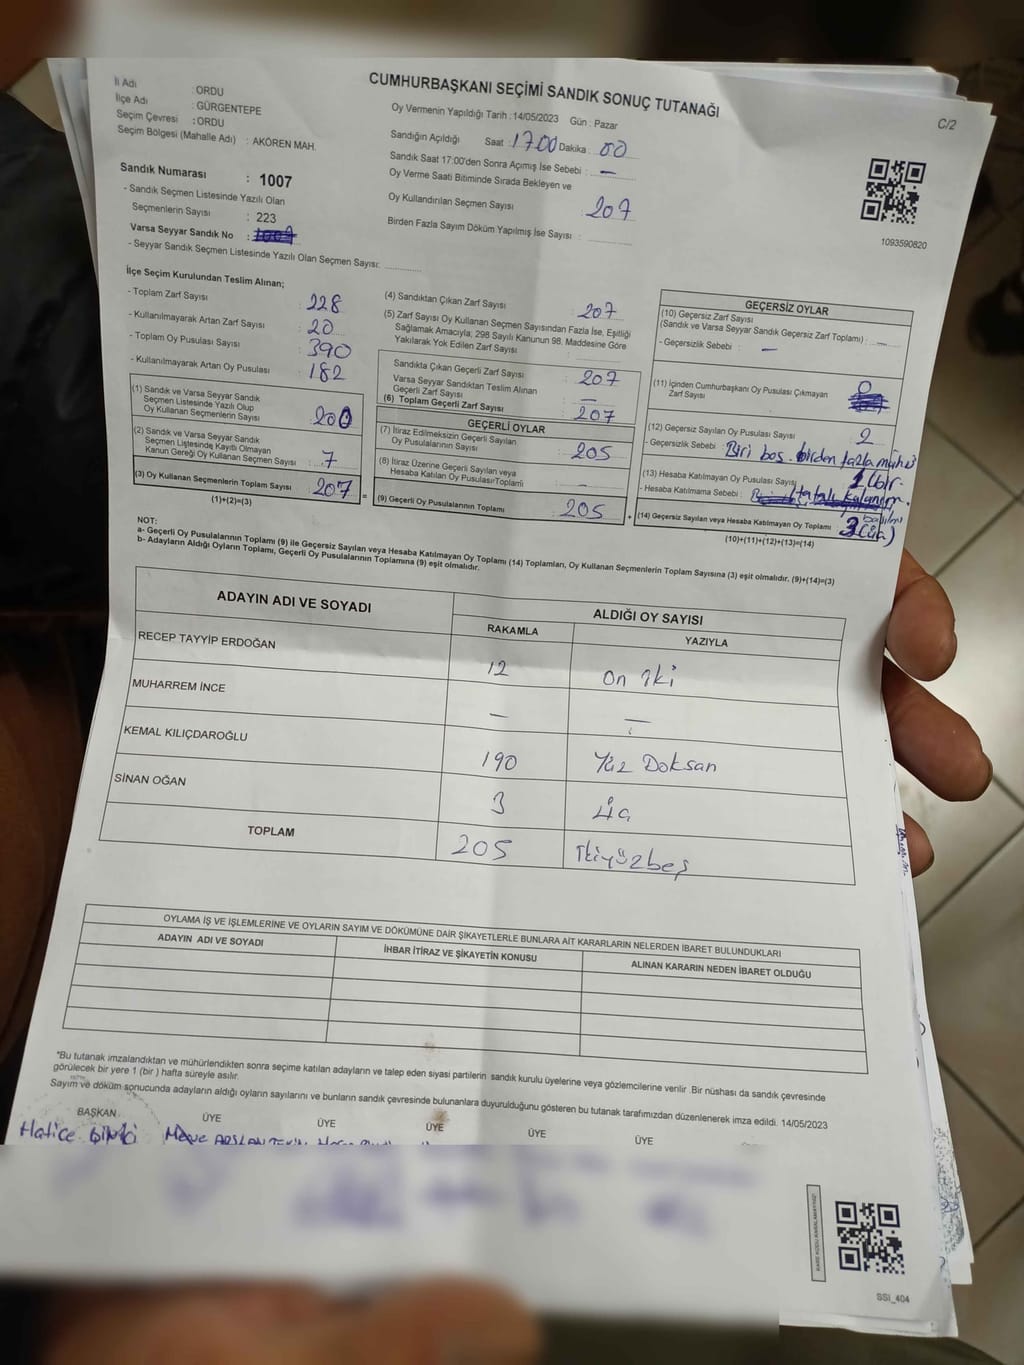 CUMHURBAŞKANI SEÇİMİ SANDIK SONUÇ TUTANAĞI
C/2
İl Adı : ORDU
İlçe Adı : GÜRGENTEPE
Seçim Çevresi : ORDU
Seçim Bölgesi (Mahalle Adı) : AKÖREN MAH.
Sandık Numarası : 1007
- Sandık Seçmen Listesinde Yazılı Olan
Seçmenlerin Sayısı : 223
Varsa Seyyar Sandık No :
- Seyyar Sandık Seçmen Listesinde Yazılı Olan Seçmen Sayısı: ..............
Oy Vermenin Yapıldığı Tarih : 14/05/2023 Gün : Pazar
Sandığın Açıldığı Saat : 17.00 Dakika : 00
Sandık Saat 17:00'den Sonra Açımış İse Sebebi : –
Oy Verme Saati Bitiminde Sırada Bekleyen ve
Oy Kullandırılan Seçmen Sayısı : 207
Birden Fazla Sayım Döküm Yapılmış İse Sayısı : ..............
1093590820
İlçe Seçim Kurulundan Teslim Alınan;
- Toplam Zarf Sayısı : 228
- Kullanılmayarak Artan Zarf Sayısı : 20
- Toplam Oy Pusulası Sayısı : 390
- Kullanılmayarak Artan Oy Pusulası : 182
(1) Sandık ve Varsa Seyyar Sandık
Seçmen Listesinde Yazılı Olup
Oy Kullanan Seçmenlerin Sayısı : 200
(2) Sandık ve Varsa Seyyar Sandık
Seçmen Listesinde Kayıtlı Olmayan
Kanun Gereği Oy Kullanan Seçmen Sayısı : 7
(3) Oy Kullanan Seçmenlerin Toplam Sayısı : 207 =
(1)+(2)=(3)
(4) Sandıktan Çıkan Zarf Sayısı : 207
(5) Zarf Sayısı Oy Kullanan Seçmen Sayısından Fazla İse, Eşitliği
Sağlamak Amacıyla; 298 Sayılı Kanunun 98. Maddesine Göre
Yakılarak Yok Edilen Zarf Sayısı :
Sandıkta Çıkan Geçerli Zarf Sayısı : 207
Varsa Seyyar Sandıktan Teslim Alınan
Geçerli Zarf Sayısı : –
(6) Toplam Geçerli Zarf Sayısı : 207
GEÇERLİ OYLAR
(7) İtiraz Edilmeksizin Geçerli Sayılan
Oy Pusulalarının Sayısı : 205
(8) İtiraz Üzerine Geçerli Sayılan veya
Hesaba Katılan Oy Pusulası Toplamı : –
(9) Geçerli Oy Pusulalarının Toplamı : 205 +
GEÇERSİZ OYLAR
(10) Geçersiz Zarf Sayısı
(Sandık ve Varsa Seyyar Sandık Geçersiz Zarf Toplamı) : –
- Geçersizlik Sebebi : –
(11) İçinden Cumhurbaşkanı Oy Pusulası Çıkmayan
Zarf Sayısı : 0
(12) Geçersiz Sayılan Oy Pusulası Sayısı : 2
- Geçersizlik Sebebi : Biri boş. birden fazla mühür
(13) Hesaba Katılmayan Oy Pusulası Sayısı :
- Hesaba Katılmama Sebebi :
(14) Geçersiz Sayılan veya Hesaba Katılmayan Oy Toplamı : 3
(10)+(11)+(12)+(13)=(14)
NOT:
a- Geçerli Oy Pusulalarının Toplamı (9) ile Geçersiz Sayılan veya Hesaba Katılmayan Oy Toplamı (14) Toplamları, Oy Kullanan Seçmenlerin Toplam Sayısına (3) eşit olmalıdır. (9)+(14)=(3)
b- Adayların Aldığı Oyların Toplamı, Geçerli Oy Pusulalarının Toplamına (9) eşit olmalıdır.
ADAYIN ADI VE SOYADI ALDIĞI OY SAYISI
RAKAMLA YAZIYLA
RECEP TAYYİP ERDOĞAN 12 On iki
MUHARREM İNCE – –
KEMAL KILIÇDAROĞLU 190 Yüz Doksan
SİNAN OĞAN 3 Üç
TOPLAM 205 İkiyüzbeş
OYLAMA İŞ VE İŞLEMLERİNE VE OYLARIN SAYIM VE DÖKÜMÜNE DAİR ŞİKAYETLERLE BUNLARA AİT KARARLARIN NELERDEN İBARET BULUNDUKLARI
ADAYIN ADI VE SOYADI İHBAR İTİRAZ VE ŞİKAYETİN KONUSU ALINAN KARARIN NEDEN İBARET OLDUĞU
*Bu tutanak imzalandıktan ve mühürlendikten sonra seçime katılan adayların ve talep eden siyasi partilerin sandık kurulu üyelerine veya gözlemcilerine verilir .Bir nüshası da sandık çevresinde
görülecek bir yere 1 (bir ) hafta süreyle asılır.
Sayım ve döküm sonucunda adayların aldığı oyların sayılarını ve bunların sandık çevresinde bulunanlara duyurulduğunu gösteren bu tutanak tarafımızdan düzenlenerek imza edildi. 14/05/2023
BAŞKAN ÜYE ÜYE ÜYE ÜYE ÜYE
Hatice
SSİ_404